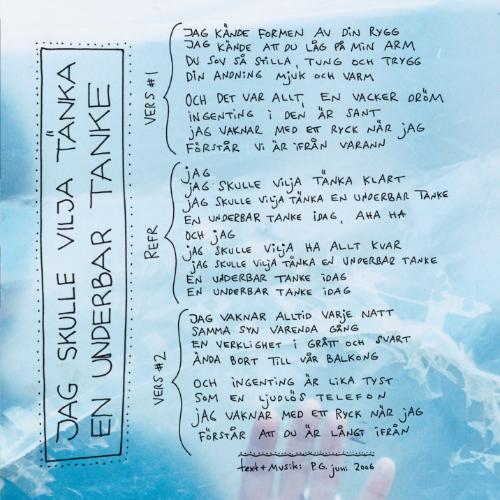 JAG SKULLE VILJA TÄNKA
EN UNDERBAR TANKE
VERS #1
JAG KÄNDE FORMEN AV DIN RYGG
JAG KÄNDE ATT DU LÅG PÅ MIN ARM
DU SOV SÅ STILLA, TUNG OCH TRYGG
DIN ANDNING MJUK OCH VARM
OCH DET VAR ALLT, EN VACKER DRÖM
INGENTING I DEN ÄR SANT
JAG VAKNAR MED ETT RYCK NÄR JAG
FÖRSTÅR VI ÄR IFRÅN VARANN
REFR
JAG
JAG SKULLE VILJA TÄNKA KLART
JAG SKULLE VILJA TÄNKA EN UNDERBAR TANKE
EN UNDERBAR TANKE IDAG, AHA HA
OCH JAG
JAG SKULLE VILJA HA ALLT KVAR
JAG SKULLE VILJA TÄNKA EN UNDERBAR TANKE
EN UNDERBAR TANKE IDAG
EN UNDERBAR TANKE IDAG
VERS #2
JAG VAKNAR ALLTID VARJE NATT
SAMMA SYN VARENDA GÅNG
EN VERKLIGHET I GRÅTT OCH SVART
ÄNDA BORT TILL VÅR BALKONG
OCH INGENTING ÄR LIKA TYST
SOM EN LJUDLÖS TELEFON
JAG VAKNAR MED ETT RYCK NÄR JAG
FÖRSTÅR ATT DU ÄR LÅNGT IFRÅN
text + Musik: P.G. juni 2006